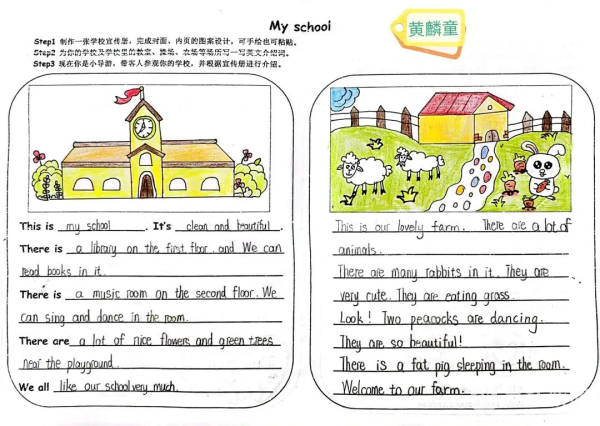 My school
黄麟童
Step1 制作一张学校宣传册，完成封面、内页的图案设计，可手绘也可粘贴。
Step2 为你的学校及学校里的教室、操场、农场等场所写一写英文介绍词。
Step3 现在你是小导游，带客人参观你的学校，并根据宣传册进行介绍。
This is my school. It's clean and beautiful.
There is a library on the first floor. and We can
read books in it.
There is a music room on the second floor. We
can sing and dance in the room.
There are a lot of nice flowers and green trees
near the playground.
We all like our school very much.
This is our lovely farm. There are a lot of
animals.
There are many rabbits in it. They are
very cute. They are eating grass.
Look! Two peacocks are dancing.
They are so beautiful!
There is a fat pig sleeping in the room.
Welcome to our farm.